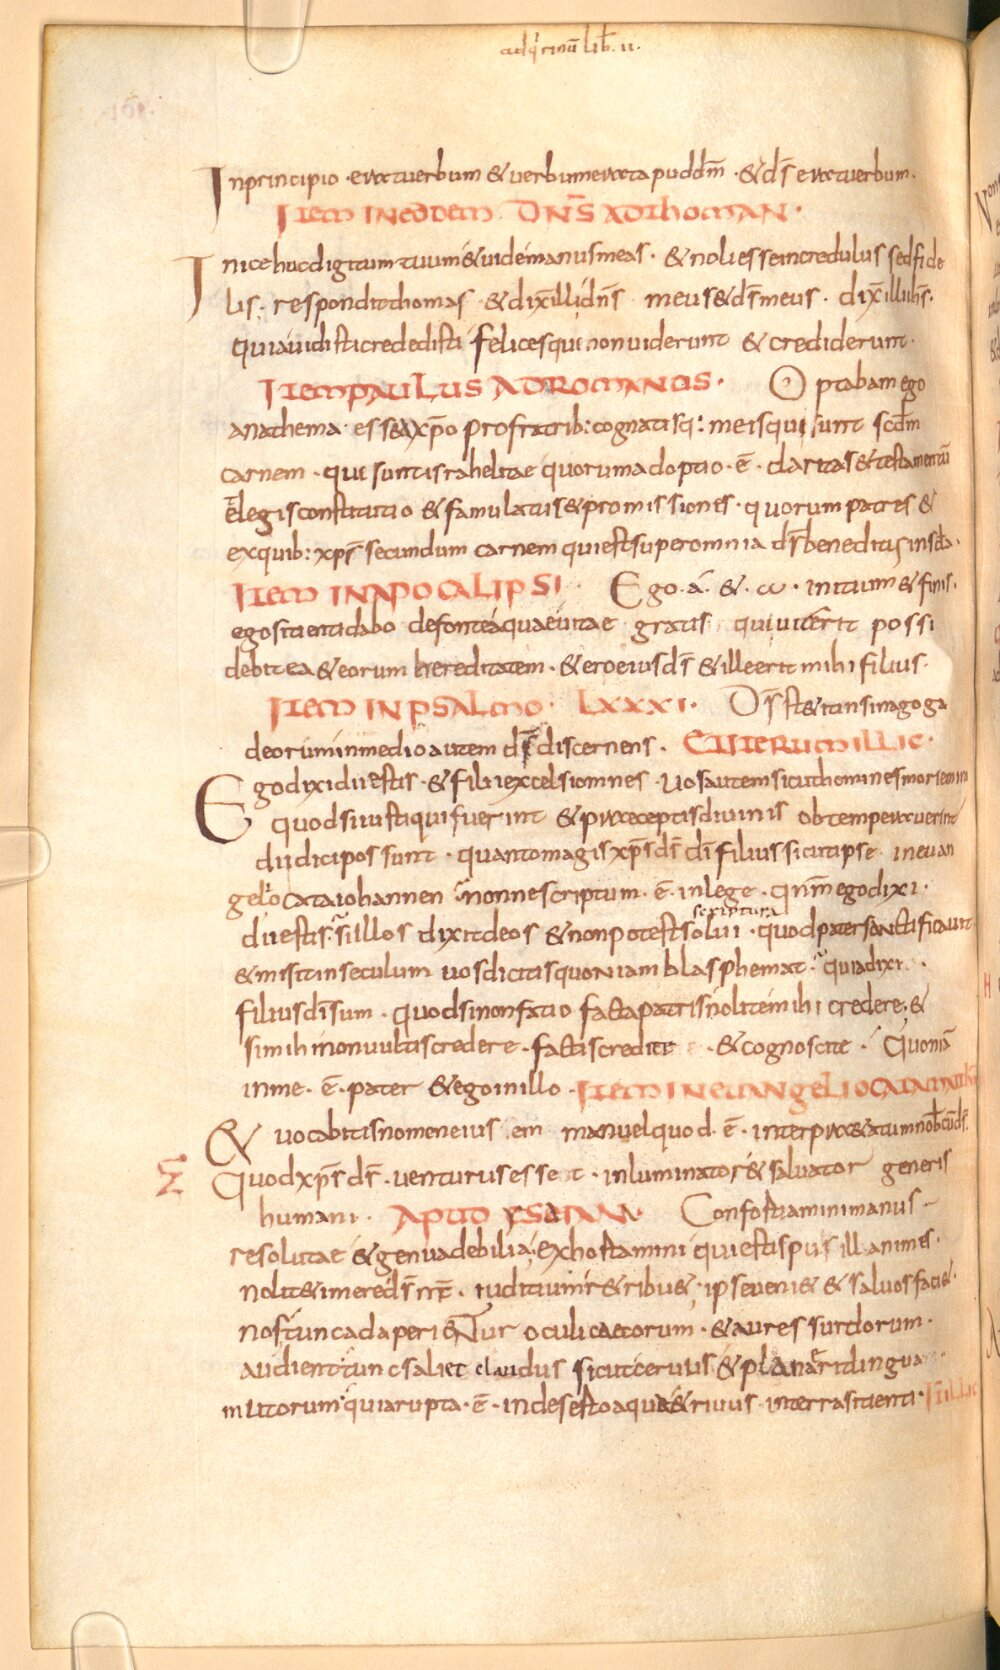 adq̇rinū lib̄. ii.
In principio · erat uerbum & uerbum erat apud dm̄ · & ds̄ erat uerbum.
ITEM IN EODEM DN̄S AD THOMAN ·
Inice huc digitum tuum & uide manus meas · & noli esse incredulus sed fide
lis; respondit thomas & dix̄ illi dn̄s meus & ds̄ meus · dix̄ illi ih̄s·
quia uidisti credidisti felices qui non uiderunt & crediderunt·
ITEM PAULUS AD ROMANOS · Optabam ego
anathema esse a xp̄o pro fratrib: cognatisq: meis qui sunt scdm̄
carnem · qui sunt israhelitae quorum adoptio · ē · claritas & testamentū
& legis constitutio & famulatus & promissiones · quorum patres &
ex quib: xp̄s secundum carnem qui est super omnia ds̄ benedictus in scl̄a·
ITEM IN APOCALIPSI Ego · a · & · ω · initium & finis·
ego sitienti dabo de fonte aquae uitae gratis qui uicerit possi
debit ea & eorum hereditatem · & ero eius ds̄ & ille erit mihi filius·
ITEM IN PSALMO · LXXXI · Ds̄ st&it in sinagoga
deorum in medio autem ds̄ discernens · ET ITERUM ILLIC·
Ego dixi dii estis · & filii excelsi omnes · uos autem sicut homines moriemini
quod si iusti qui fuerint & praeceptis diuinis obtemperauerint
dii dici possunt · quanto magis xp̄s ds̄ dī filius sicut ipse in euan
gelio cata iohannen nonne scriptum · ē · in lege · qnm̄ ego dixi ·
scriptura
dii estis · si illos dixit deos & non potest solui · quod pater sanctificauit
& misit in seculum uos dicitis quoniam blasphemat · quia dixi ·
filius dī sum · quod si non fatio facta patris nolite mihi credere; &
si mihi non uultis credere · factis credite · & cognoscite · Quoniā
in me · ē · pater & ego in illo · ITEM IN EUANGELIO CATA
Et uocabitis nomen eius emmanuel quod · ē · interpraetatum nob̄cū ds̄·
Quod xp̄s ds̄ · uenturus esset · inluminator & saluator generis
humani · APUD YSAIAN Confortamini manus
resolutae & genua debilia; exhortamini qui estis pusillanimes·
nolite timere ds̄ nr̄ · iuditium r&ribu& · ipse ueni& & saluos faci&·
nos tunc adaperientur oculi caecorum · & aures surdorum·
audient tunc saliet cludus sicut ceruus & plana erit lingua
mutorum quia rupta · ē · in deserto aqua & riuus in terra sitienti·